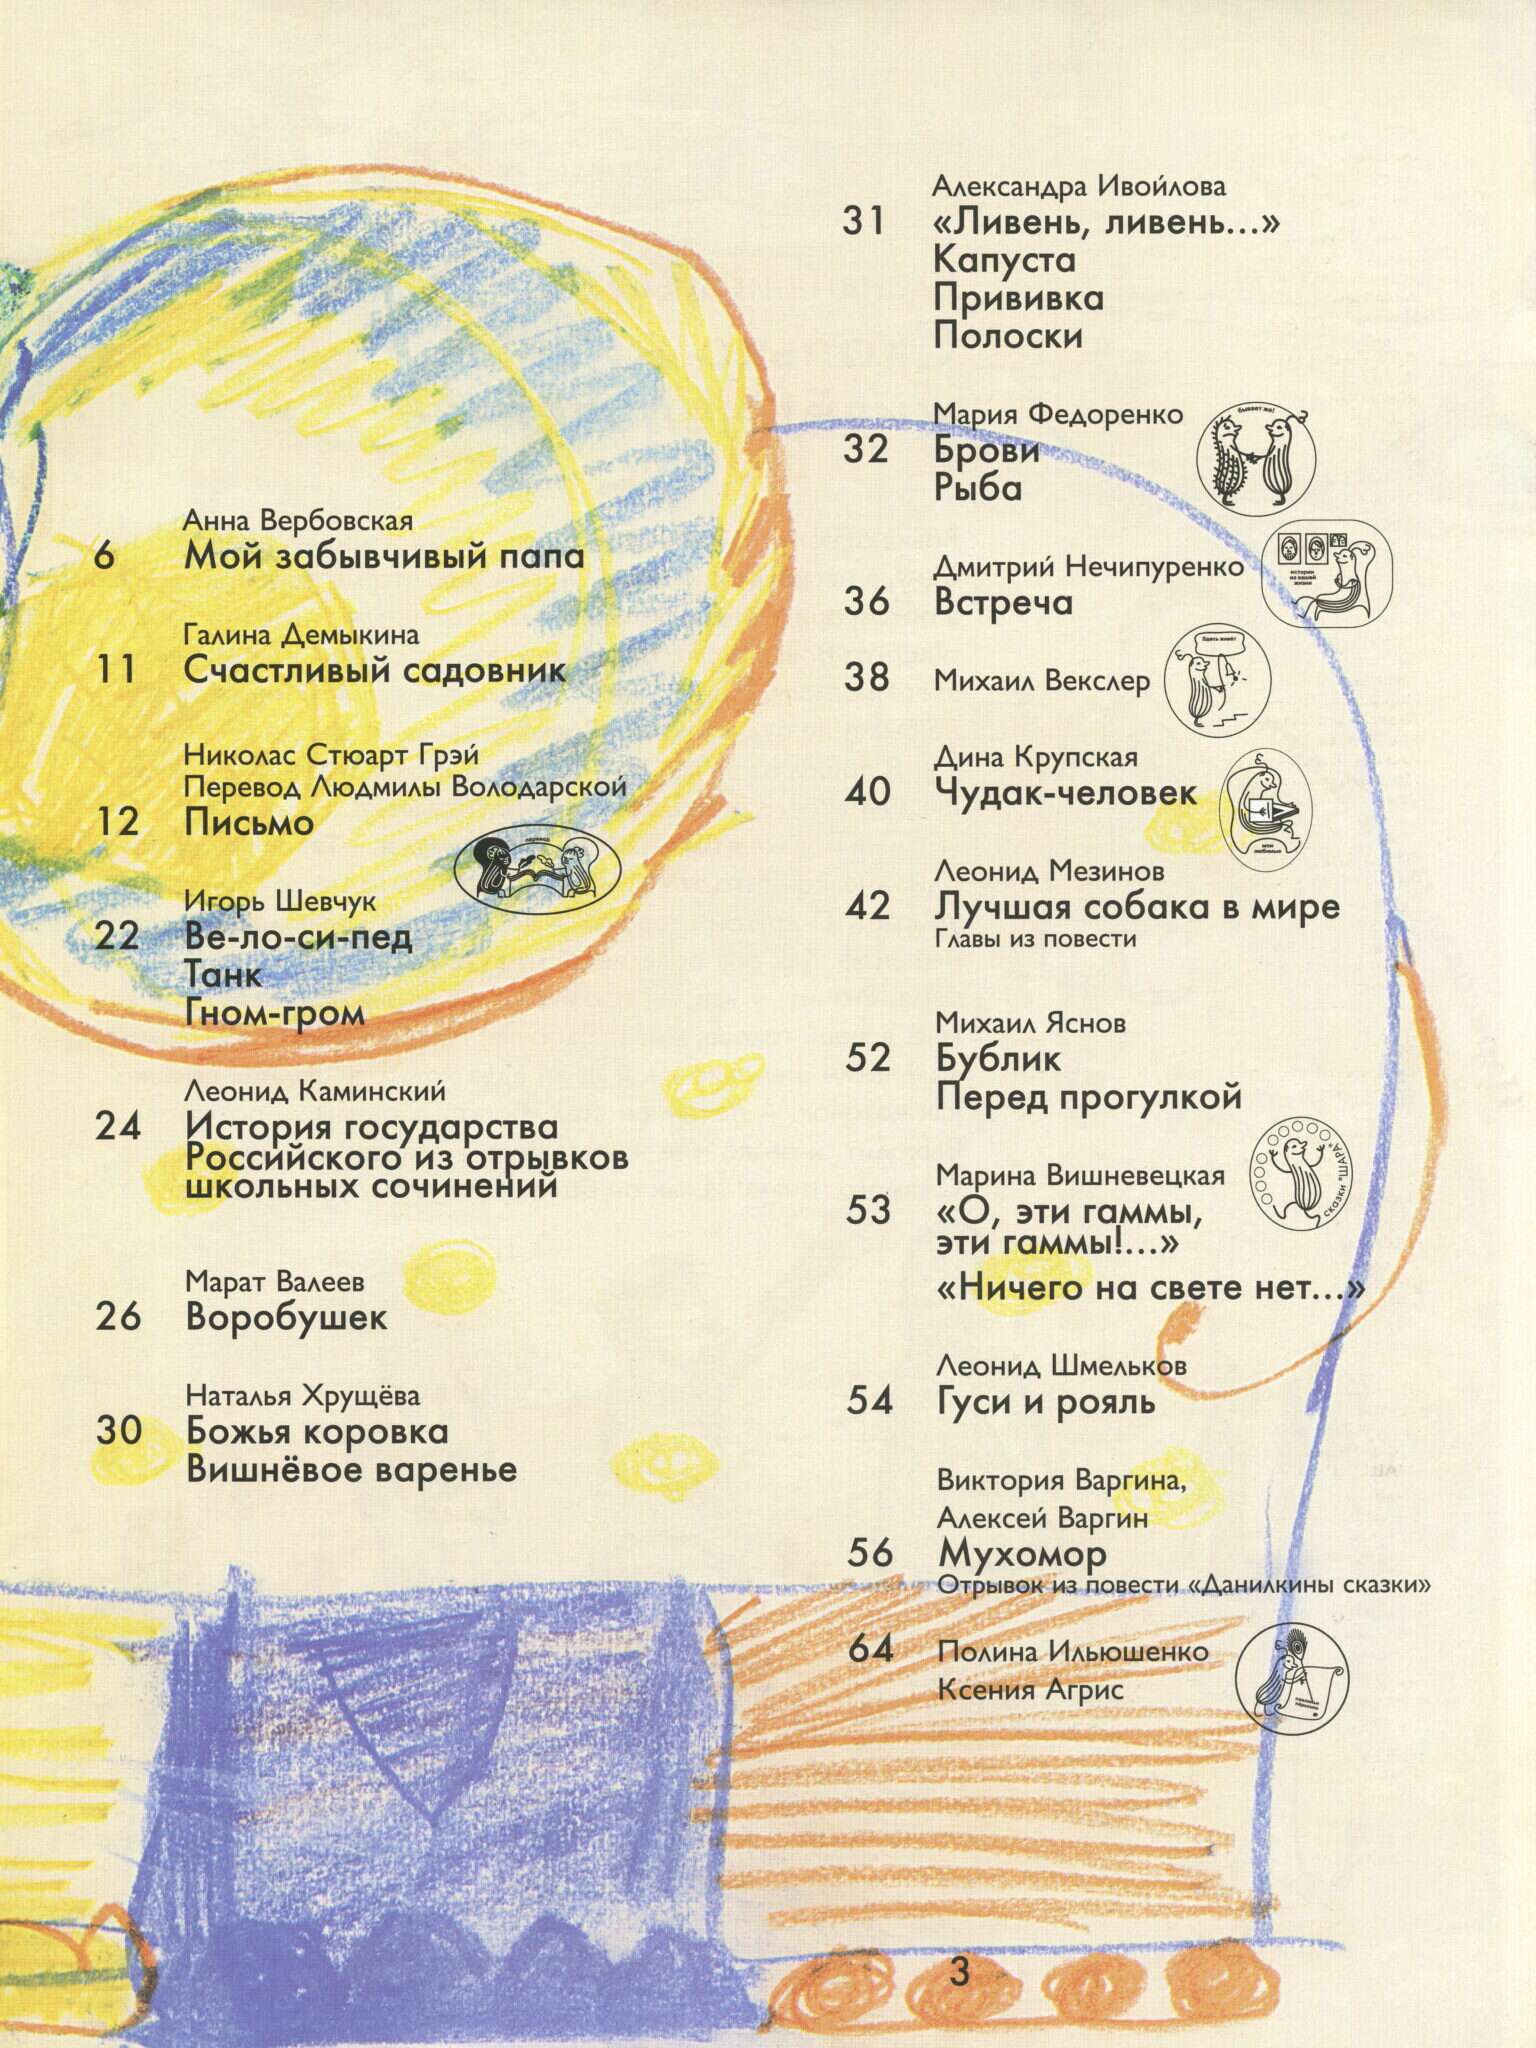 Анна Вербовская
6 Мой забывчивый папа
Галина Демыкина
11 Счастливый садовник
Николас Стюарт Грэй
Перевод Людмилы Володарской
12 Письмо
Игорь Шевчук
22 Ве-ло-си-пед
Танк
Гном-гром
Леонид Каминский
24 История государства
Российского из отрывков
школьных сочинений
Марат Валеев
26 Воробушек
Наталья Хрущёва
30 Божья коровка
Вишнёвое варенье
Александра Ивойлова
31 «Ливень, ливень...»
Капуста
Прививка
Полоски
Мария Федоренко
32 Брови
Рыба
бывает же!
Дмитрий Нечипуренко
36 Встреча
истории
из вашей
жизни
38 Михаил Векслер
Здесь живёт
Дина Крупская
40 Чудак-человек
мои
любимые
Леонид Мезинов
42 Лучшая собака в мире
Главы из повести
Михаил Яснов
52 Бублик
Перед прогулкой
Марина Вишневецкая
53 «О, эти гаммы,
эти гаммы!...»
«Ничего на свете нет...»
сказки "ШАРА"
Леонид Шмельков
54 Гуси и рояль
Виктория Варгина,
Алексей Варгин
56 Мухомор
Отрывок из повести «Данилкины сказки»
64 Полина Ильюшенко
Ксения Агрис
3